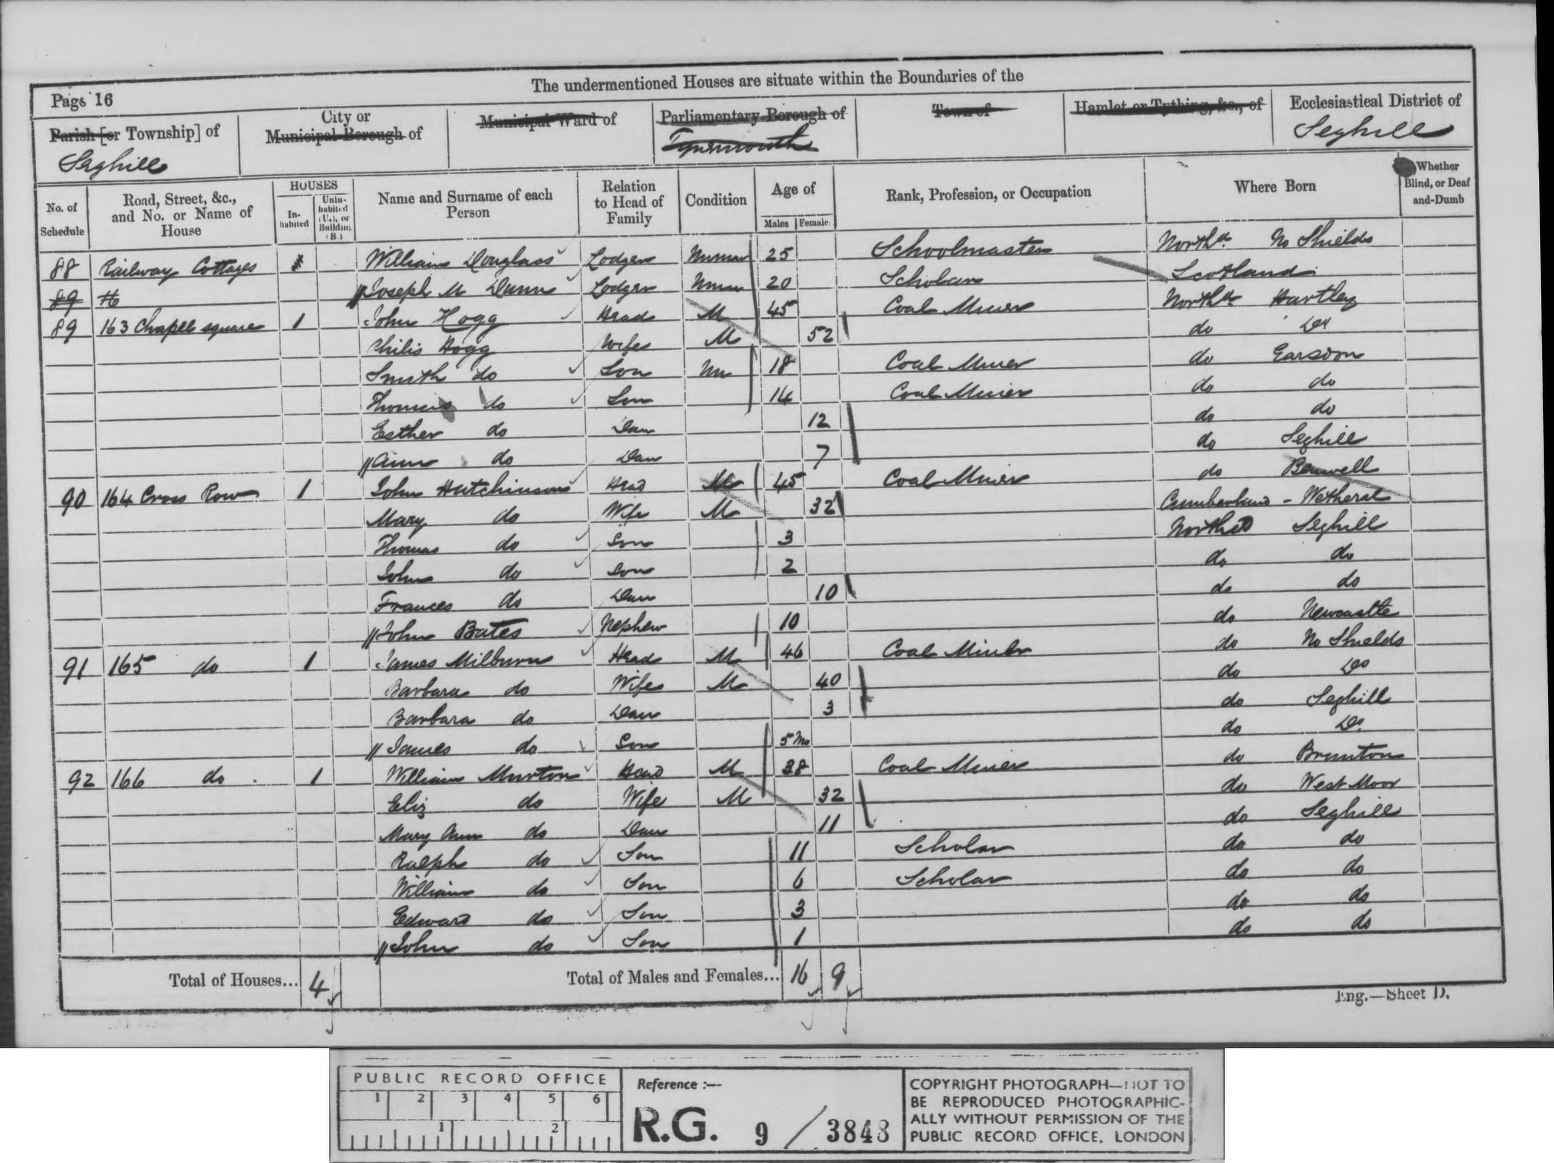 The undermentioned Houses are situate within the Boundaries of the
Page 16
Parish [or Township] of
City or Municipal Borough of
Municipal Ward of
Parliamentary Borough of
Town of
Hamlet or Tything, &c., of
Ecclesiastical District of
Seghill
Tynemouth
Seghill
No. of Schedule
Road, Street, &c., and No. or Name of House
HOUSES
In-habited
Unin-habited (U.), or Building (B.)
Name and Surname of each Person
Relation to Head of Family
Condition
Age of
Males
Females
Rank, Profession, or Occupation
Where Born
Whether Blind, or Deaf-and-Dumb
88 Railway Cottages 1 William Douglass Lodger Unmar 25 Schoolmaster North No Shields
89 Joseph M Dunn Lodger Unmar 20 Scholar Scotland
89 163 Chapel square 1 John Hogg Head M 45 Coal Miner North Hartley
Philis Hogg Wife M 52 do Do
Smith do Son Un 18 Coal Miner do Earsdon
Thomas do Son 14 Coal Miner do do
Esther do Dau 12 do do
Ann do Dau 7 do Seghill
90 164 Cross Row 1 John Hutchinson Head M 45 Coal Miner do Benwell
Mary do Wife M 32 Cumberland - Wetheral
Thomas do Son 3 Seghill
John do Son 2 do do
Frances do Dau 10 do do
John Bates Nephew 10 do Newcastle
91 165 do 1 James Milburn Head M 46 Coal Miner do No Shields
Barbara do Wife M 40 do Do
Barbara do Dau 3 do Seghill
James do Son 5 Mo do Do
92 166 do 1 William Murton Head M 38 Coal Miner do Brunton
Eliz do Wife M 32 do West Moor
Mary Ann do Dau 11 do Seghill
Ralph do Son 11 Scholar do do
William do Son 6 Scholar do do
Edward do Son 3 do do
John do Son 1 do do
Total of Houses... 4
Total of Males and Females... 16 9
Eng.—Sheet D.
PUBLIC RECORD OFFICE
1 2 3 4 5 6
1 2
Reference :—
R.G. 9 / 3848
COPYRIGHT PHOTOGRAPH—NOT TO
BE REPRODUCED PHOTOGRAPHIC-
ALLY WITHOUT PERMISSION OF THE
PUBLIC RECORD OFFICE, LONDON